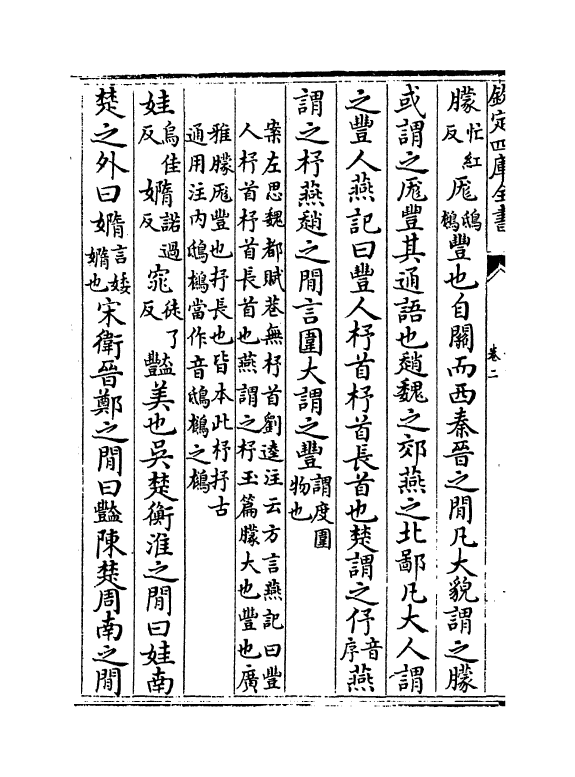 欽定四庫全書
卷二
朦忙紅反厖鴟鵂豐也自關而西秦晉之閒凡大貌謂之朦
或謂之厖豐其通語也趙魏之郊燕之北鄙凡大人謂
之豐人燕記曰豐人杼首杼首長首也楚謂之伃音序燕
謂之杼燕趙之閒言圍大謂之豐謂度圍物也
案左思魏都賦巷無杼首劉逵注云方言燕記曰豐
人杼首杼首長首也燕謂之杼玉篇朦大也豐也廣
雅朦厖豐也抒長也皆本此杼抒古
通用注内鴟鵂當作音鴟鵂之鵂
娃烏佳反嫷諾過反窕徒了反豔美也吳楚衡淮之閒曰娃南
楚之外曰嫷言婑嫷也宋衛晉鄭之閒曰豔陳楚周南之閒